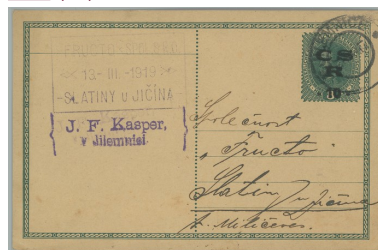 13. III. 1919
SLATINY u JIČÍNA
J. F. Kasper,
v Jilemnici
ČS
R
10
Společnost
"Fructo"
Slatiny u Jičína
p. Miličeves.